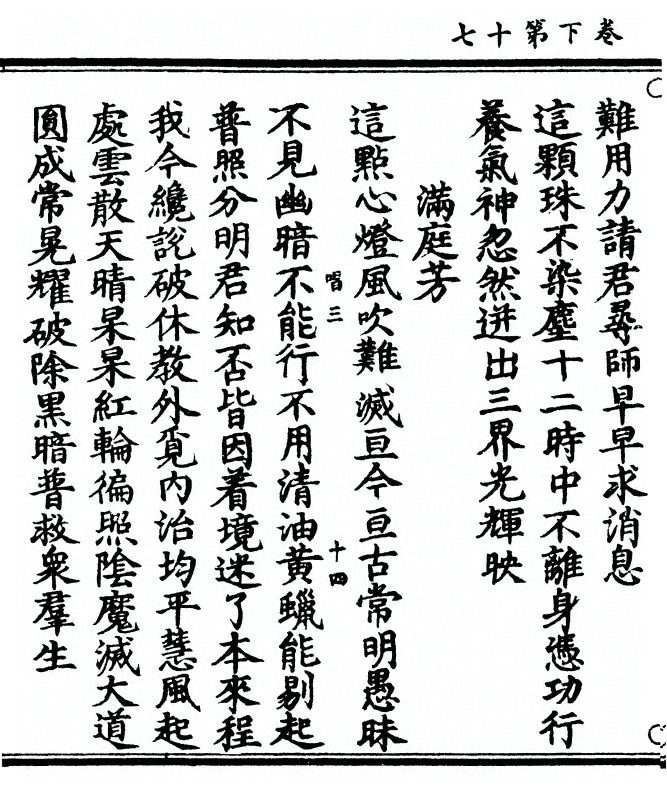 卷下第十七
難用力請君尋師早早求消息
這顆珠不染塵十二時中不離身憑功行
養氣神忽然迸出三界光輝映
滿庭芳
這點心燈風吹難滅亘今亘古常明愚昧
唱三
十四
不見幽暗不能行不用清油黄蠟能剔起
普照分明君知否皆因着境迷了本來程
我今纔說破休教外覓內治均平慧風起
處雲散天晴杲杲紅輪徧照陰魔滅大道
圓成常晃耀破除黑暗普救衆羣生